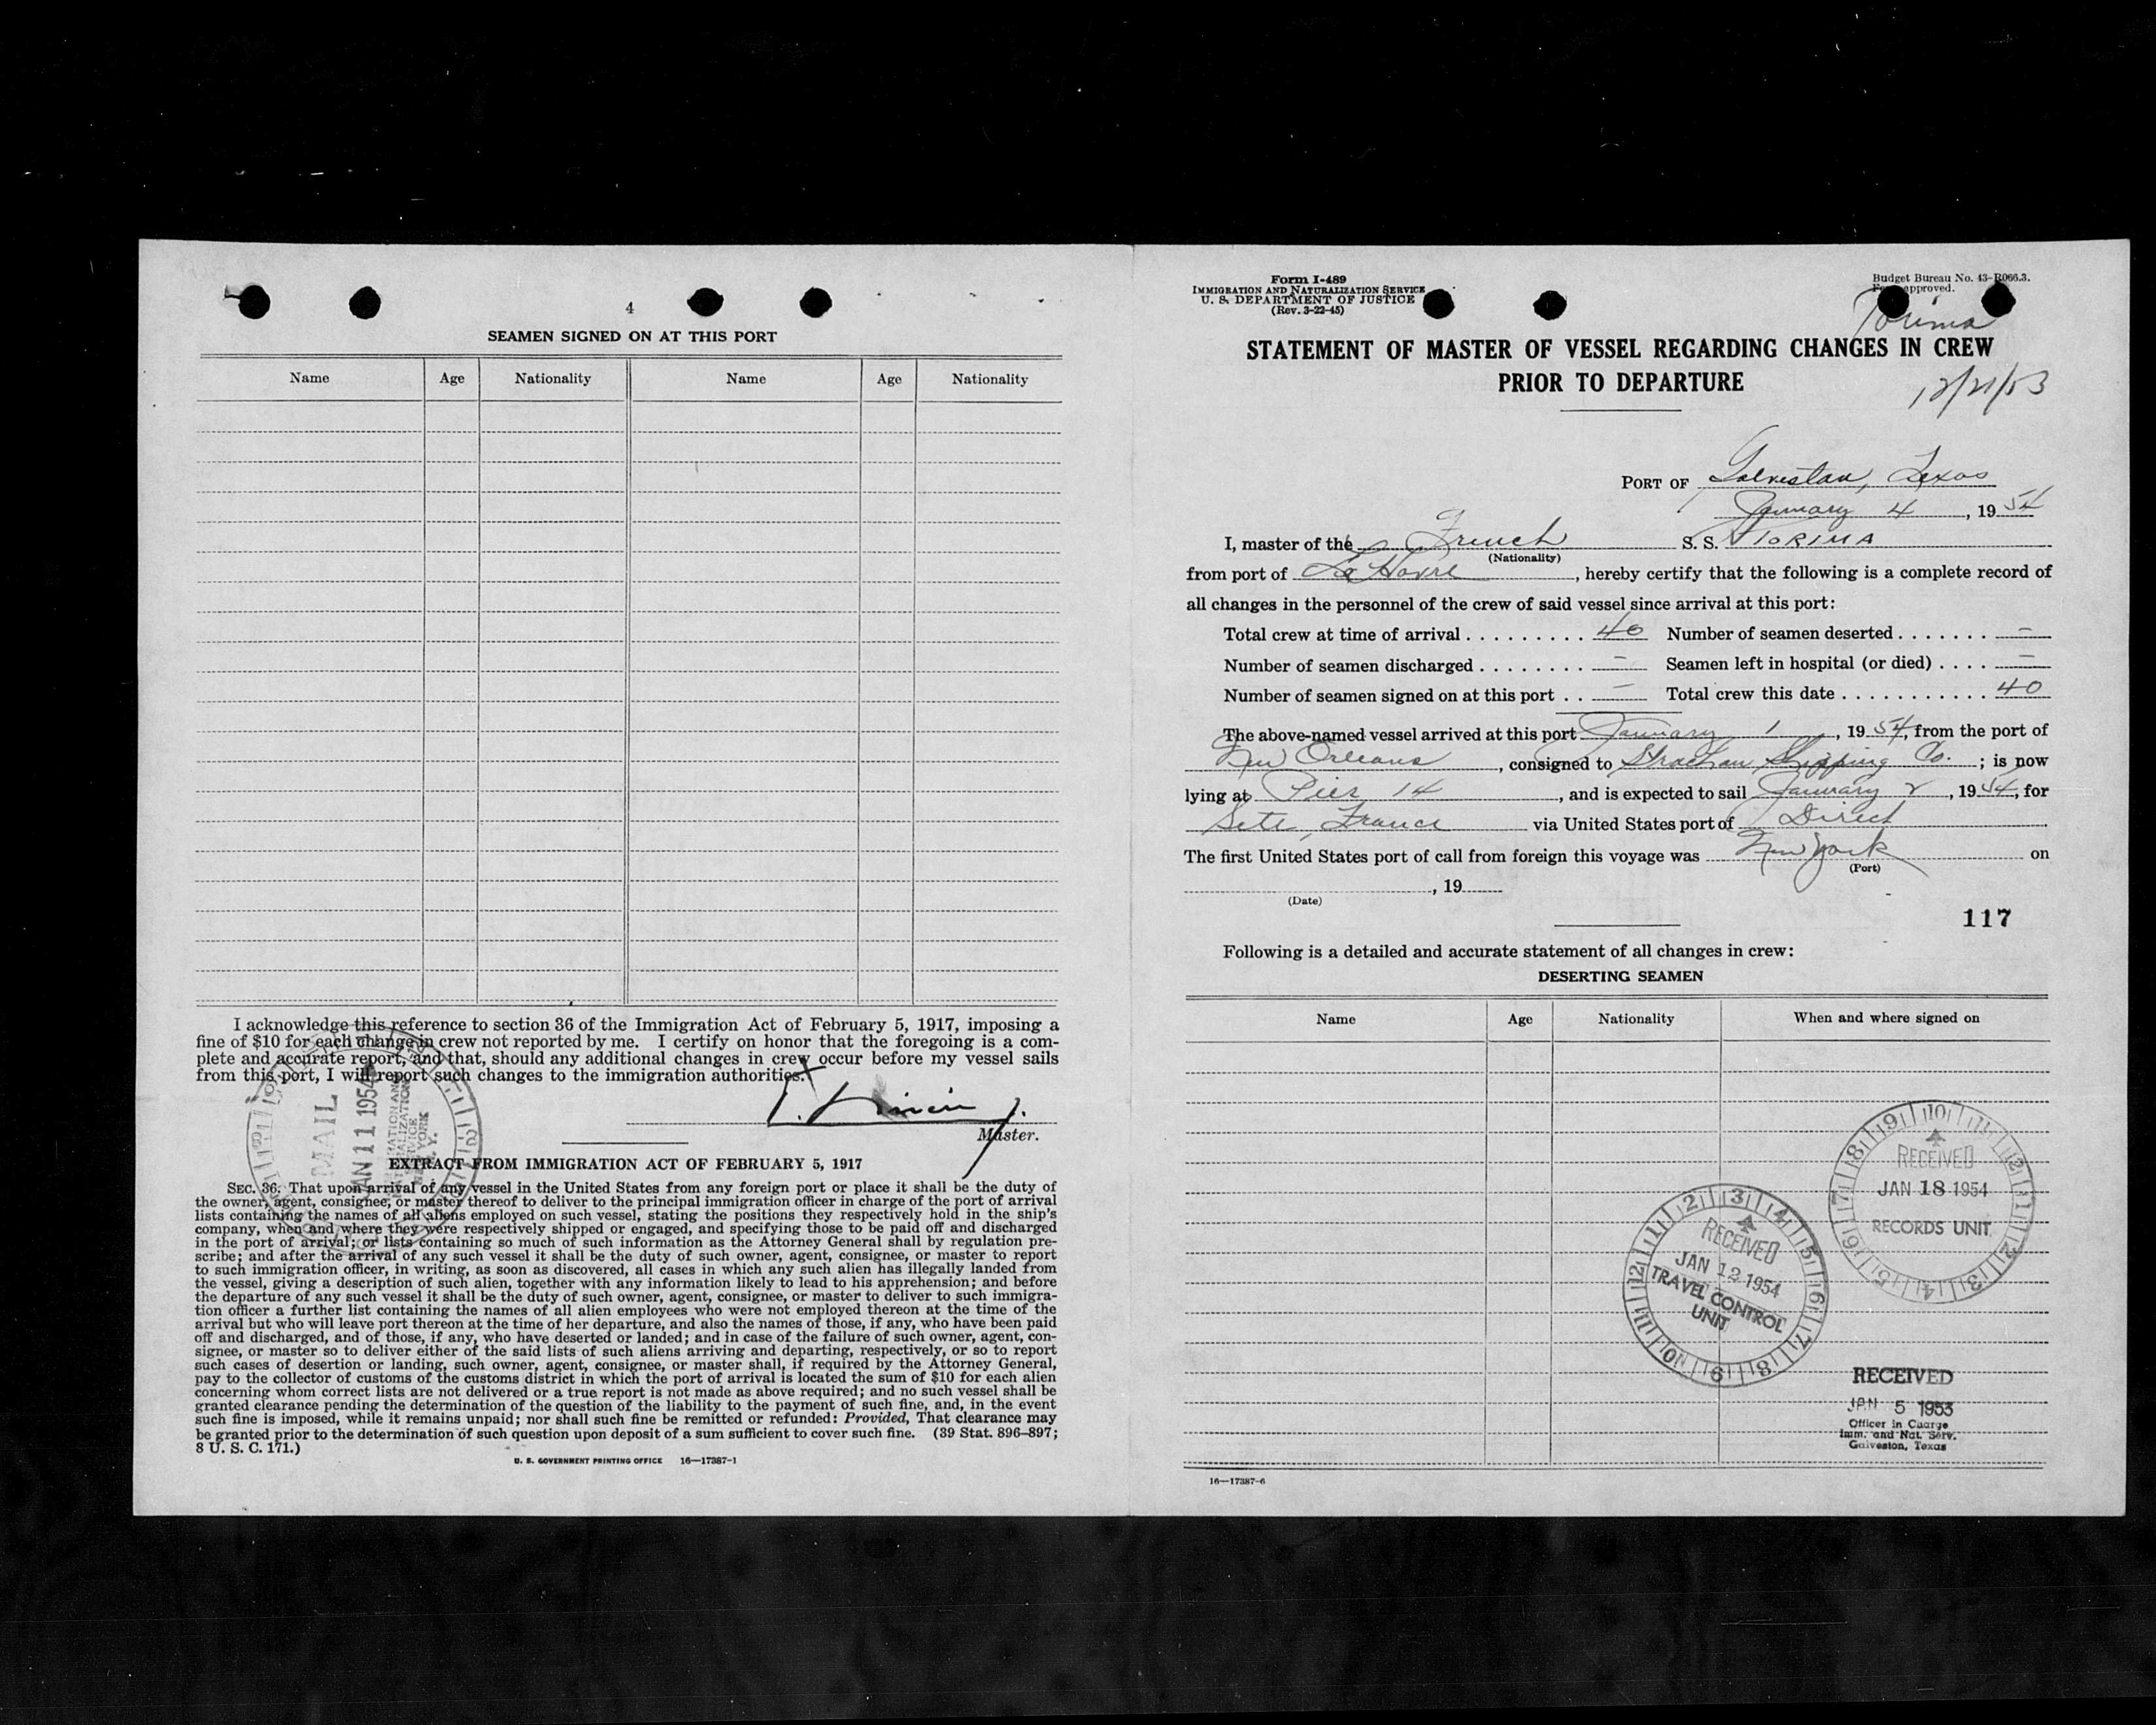 4
SEAMEN SIGNED ON AT THIS PORT
Name Age Nationality Name Age Nationality
I acknowledge this reference to section 36 of the Immigration Act of February 5, 1917, imposing a
fine of $10 for each change in crew not reported by me. I certify on honor that the foregoing is a com-
plete and accurate report, and that, should any additional changes in crew occur before my vessel sails
from this port, I will report such changes to the immigration authorities.
Master.
MAIL
JAN 11 1954
IMMIGRATION AND
NATURALIZATION
SERVICE
NEW YORK
N. Y.
EXTRACT FROM IMMIGRATION ACT OF FEBRUARY 5, 1917
SEC. 36. That upon arrival of any vessel in the United States from any foreign port or place it shall be the duty of
the owner, agent, consignee, or master thereof to deliver to the principal immigration officer in charge of the port of arrival
lists containing the names of all aliens employed on such vessel, stating the positions they respectively hold in the ship's
company, when and where they were respectively shipped or engaged, and specifying those to be paid off and discharged
in the port of arrival; or lists containing so much of such information as the Attorney General shall by regulation pre-
scribe; and after the arrival of any such vessel it shall be the duty of such owner, agent, consignee, or master to report
to such immigration officer, in writing, as soon as discovered, all cases in which any such alien has illegally landed from
the vessel, giving a description of such alien, together with any information likely to lead to his apprehension; and before
the departure of any such vessel it shall be the duty of such owner, agent, consignee, or master to deliver to such immigra-
tion officer a further list containing the names of all alien employees who were not employed thereon at the time of the
arrival but who will leave port thereon at the time of her departure, and also the names of those, if any, who have been paid
off and discharged, and of those, if any, who have deserted or landed; and in case of the failure of such owner, agent, con-
signee, or master so to deliver either of the said lists of such aliens arriving and departing, respectively, or so to report
such cases of desertion or landing, such owner, agent, consignee, or master shall, if required by the Attorney General,
pay to the collector of customs of the customs district in which the port of arrival is located the sum of $10 for each alien
concerning whom correct lists are not delivered or a true report is not made as above required; and no such vessel shall be
granted clearance pending the determination of the question of the liability to the payment of such fine, and, in the event
such fine is imposed, while it remains unpaid; nor shall such fine be remitted or refunded: Provided, That clearance may
be granted prior to the determination of such question upon deposit of a sum sufficient to cover such fine. (39 Stat. 896-897;
8 U. S. C. 171.)
U. S. GOVERNMENT PRINTING OFFICE 16—17387-1
Form I-489
IMMIGRATION AND NATURALIZATION SERVICE
U. S. DEPARTMENT OF JUSTICE
(Rev. 3-22-45)
Budget Bureau No. 43-R066.3.
approved.
Torima
STATEMENT OF MASTER OF VESSEL REGARDING CHANGES IN CREW
PRIOR TO DEPARTURE
12/21/53
PORT OF Galveston, Texas
January 4, 1954
I, master of the French S. S. TORIMA
(Nationality)
from port of Le Havre, hereby certify that the following is a complete record of
all changes in the personnel of the crew of said vessel since arrival at this port:
Total crew at time of arrival . . . . . . . . . 40 Number of seamen deserted . . . . . . . —
Number of seamen discharged . . . . . . . . — Seamen left in hospital (or died) . . . . —
Number of seamen signed on at this port . . — Total crew this date . . . . . . . . . . . 40
The above-named vessel arrived at this port January 1, 1954, from the port of
New Orleans, consigned to Strachan Shipping Co.; is now
lying at Pier 14, and is expected to sail January 2, 1954, for
Sete, France via United States port of Direct
The first United States port of call from foreign this voyage was New York on
(Port)
, 19
(Date)
117
Following is a detailed and accurate statement of all changes in crew:
DESERTING SEAMEN
Name Age Nationality When and where signed on
RECEIVED
JAN 18 1954
RECORDS UNIT
RECEIVED
JAN 12 1954
TRAVEL CONTROL
UNIT
RECEIVED
JAN 5 1953
Officer in Charge
Imm. and Nat. Serv.
Galveston, Texas
16—17387-6